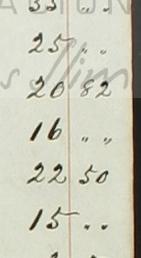 25 " "
20 82
16 " "
22 50
15 " "